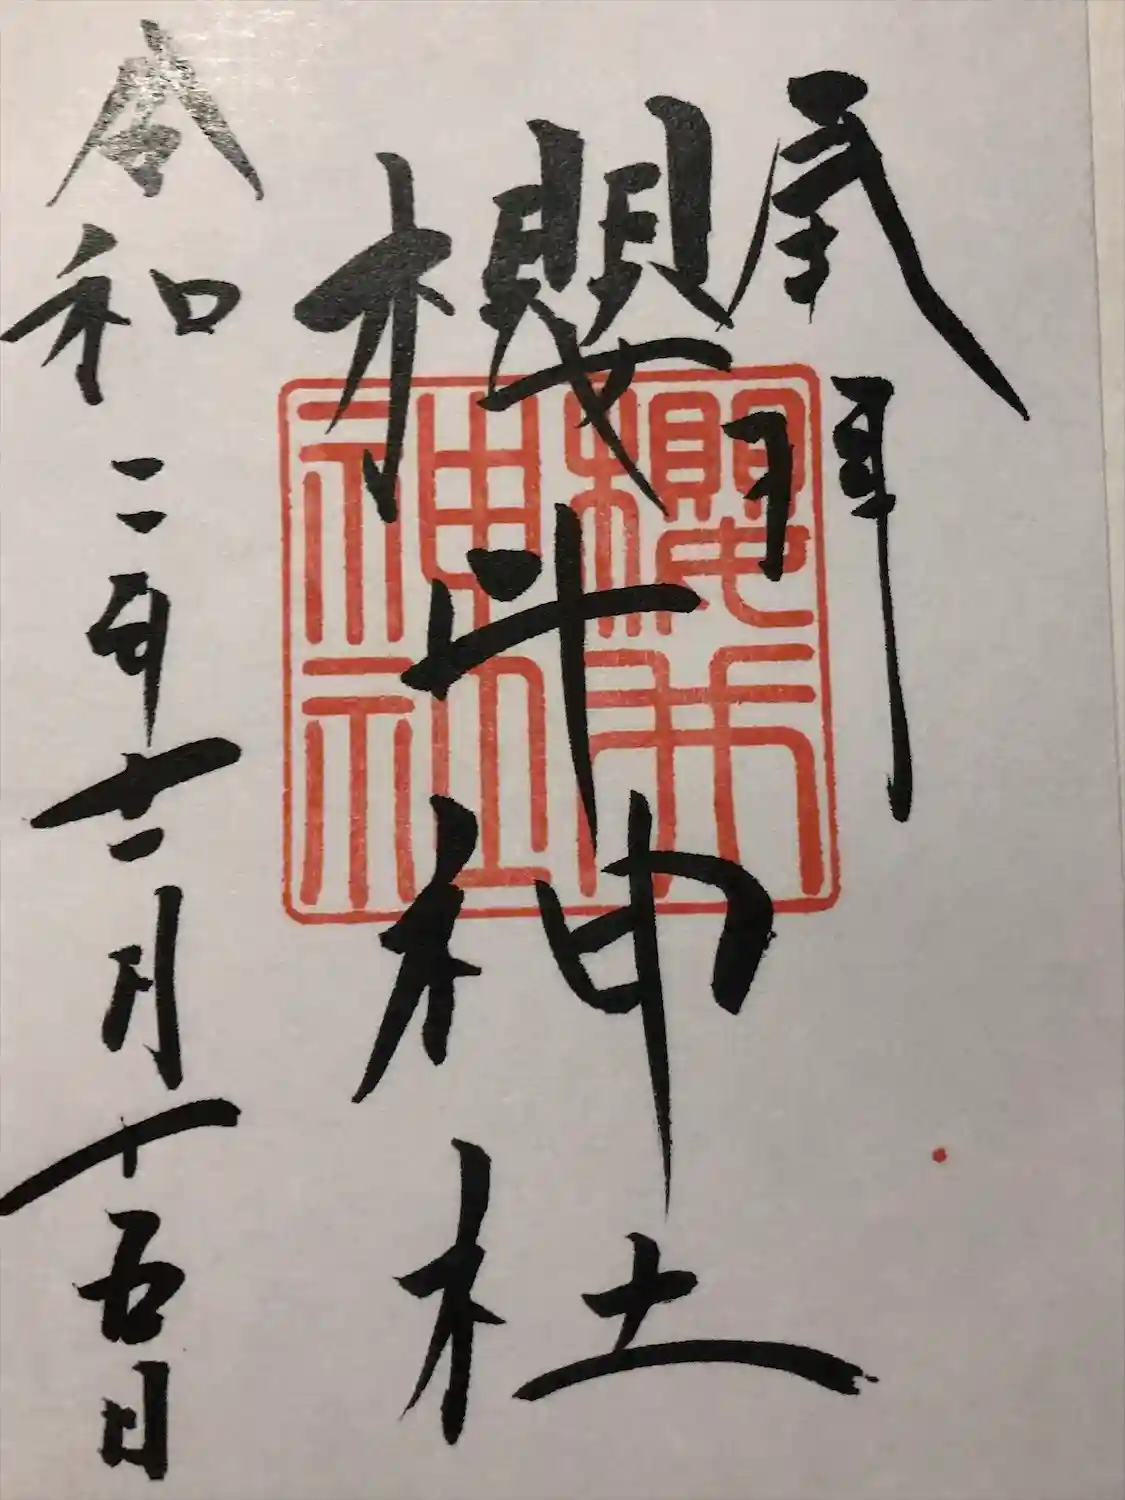 奉拝
櫻 神社
令和二年十一月十五日
櫻
神社